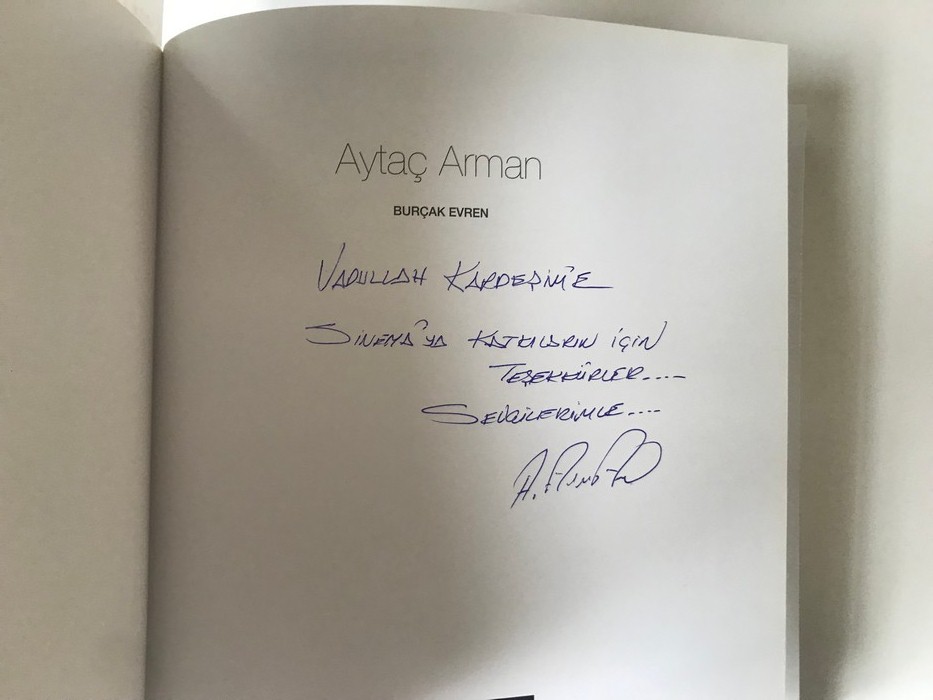 Aytaç Arman
BURÇAK EVREN
VADULLAH KARDEŞİM'E
SİNEMA'YA KATKILARIN İÇİN
TEŞEKKÜRLER....
SEVGİLERİMLE....
A. Arman